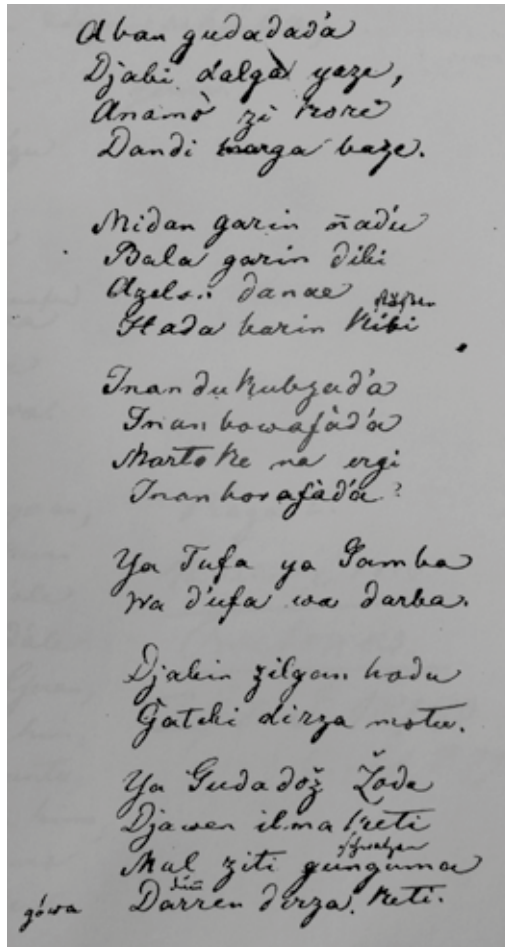 Aban gudadad́a
Djabi dalgà yaze,
Anamò zi koré
Dandi marga baze.
Midan garin ñadu
Bala garin dibi
Azels.. danae
Hada karin Kibi
Inan du Kubzad́a
Inan bowafàd́a
Marto Ke na ergi
Inan borafàd́a?
Ya Tufa ya Samba
Wa d́ufa wa darba.
Djabin zilgan hodu
Gatchi dirza motu.
Ya Gudadož Žoda
Djawen ilma Keti
Mal ziti gunguma
gówa Darren dirza. Keti.